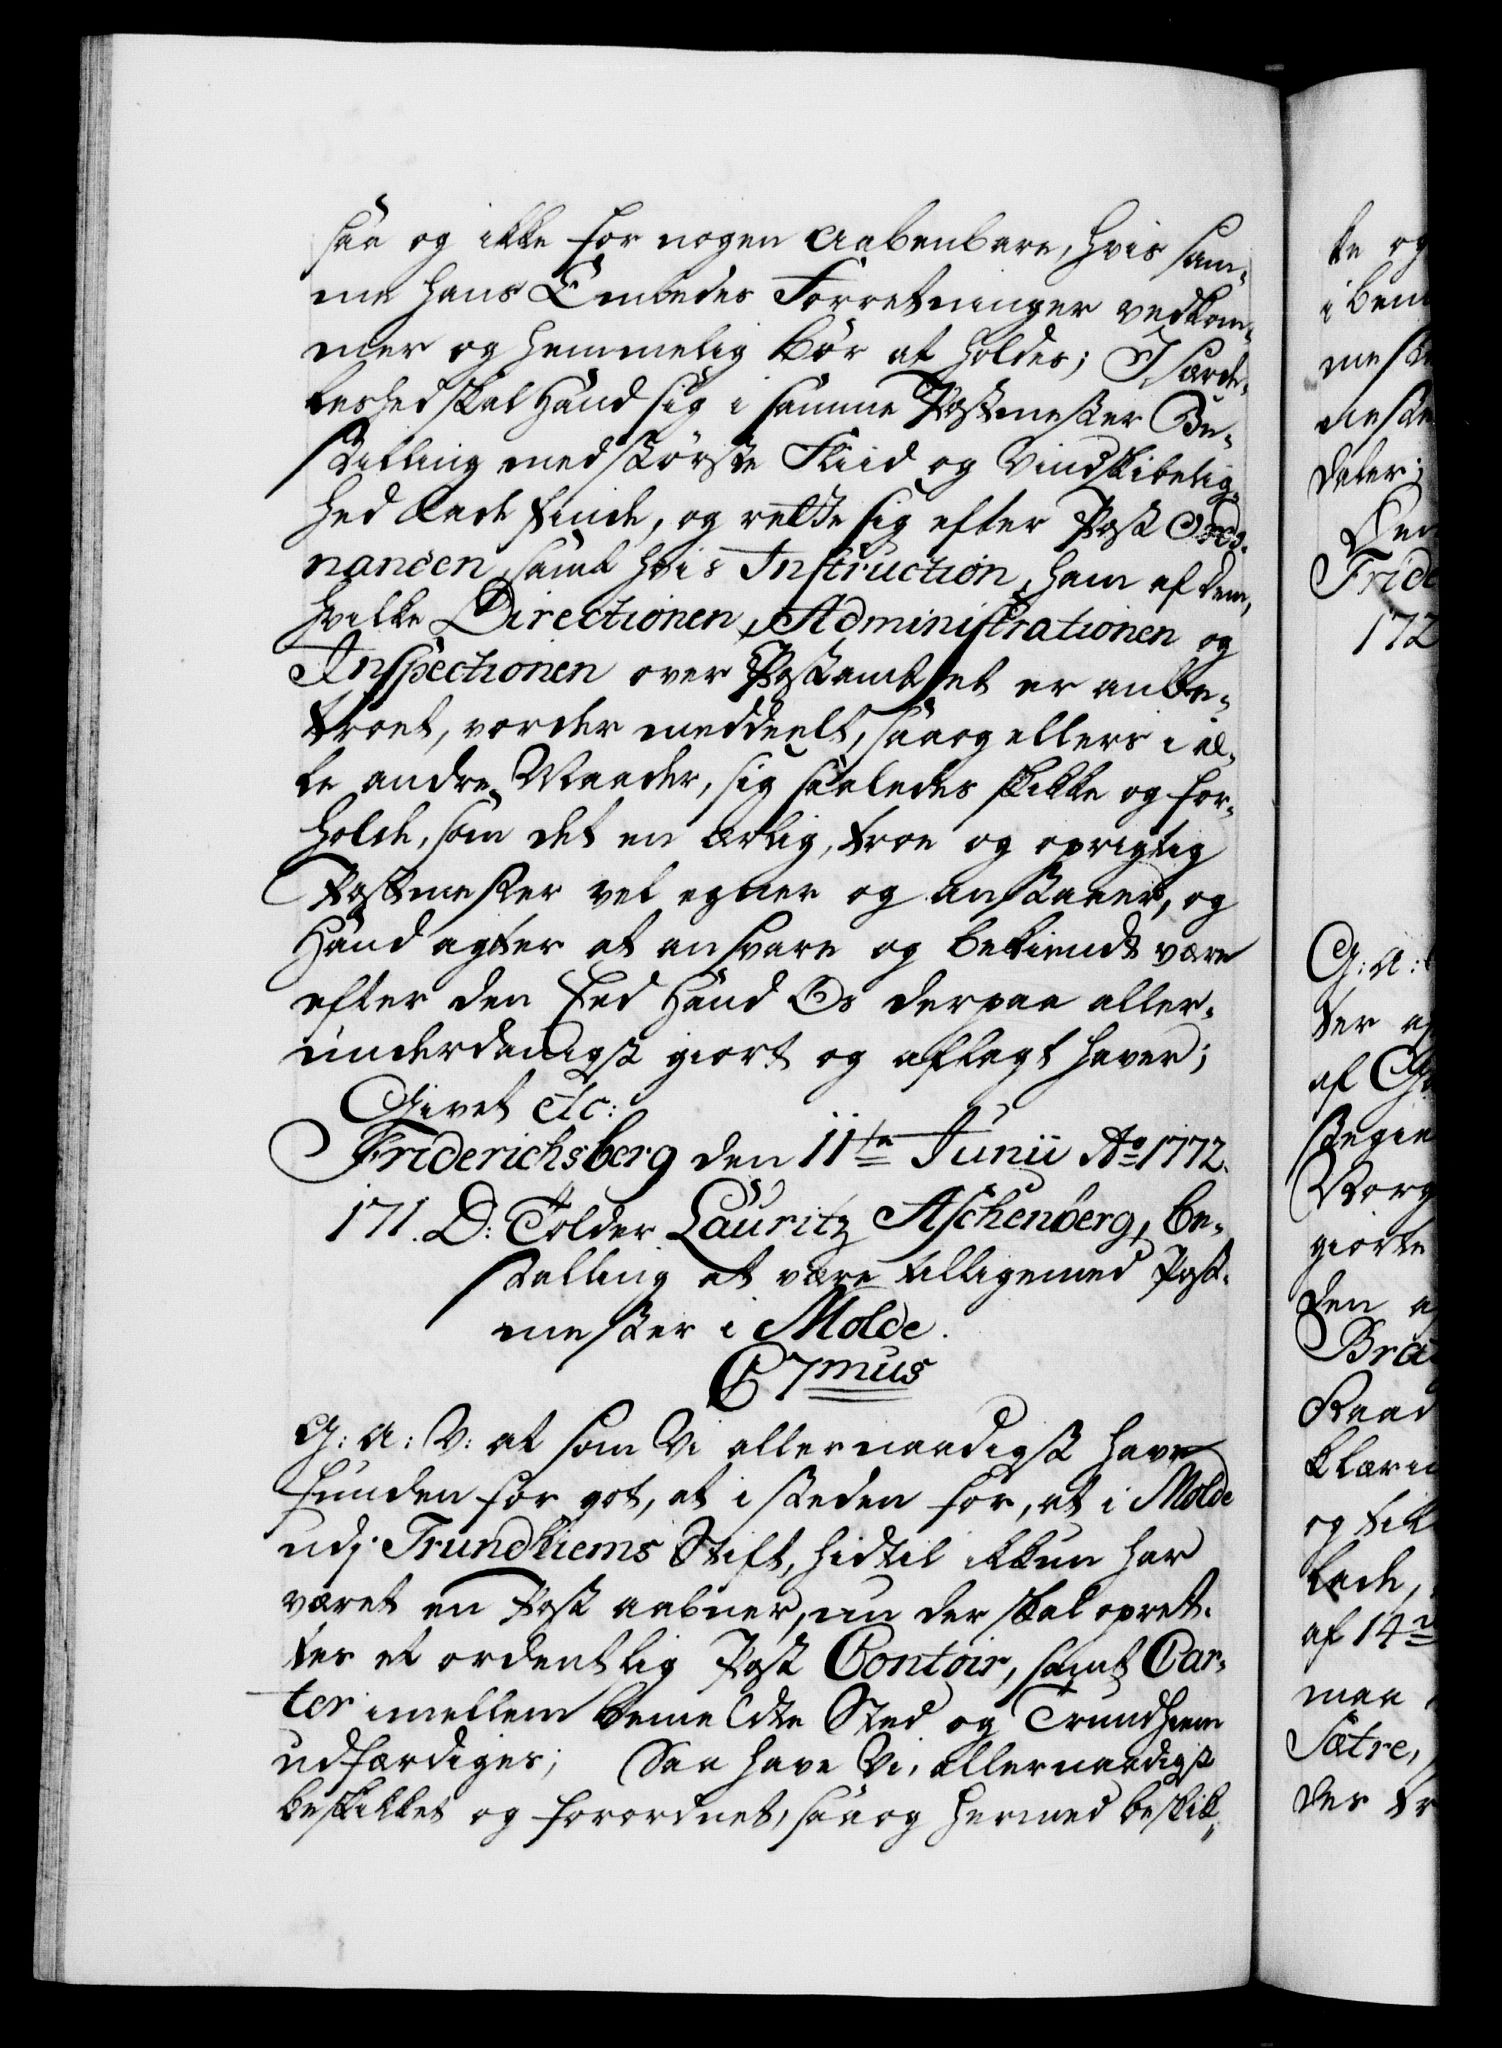 saa og ikke for nogen aabenbare, hvis sam-
me hans Embedes Forretninger vedkom-
mer og hemmelig bør at holdes; I særde-
leshed skal Hand sig i samme Postmester Be-
stilling med største Fliid og Vindskibelig-
hed lade finde, og rette sig efter Post Ordo-
nancen, samt hvis Instruction, ham af dem,
hvilke Directionen, Administrationen og
Inspectionen over Postamtet er anbe-
troet, vorder meddeelt, saaog ellers i al-
le andre Maader, sig saaledes skikke og for-
holde, som det en ærlig, troe og oprigtig
Postmester vel egner og anstaaer, og
Hand agter at ansvare og bekiendt være
efter den Eed Hand Os derpaa aller-
underdanigst giort og aflagt haver;
Givet etc:
Friderichsberg den 11te Junii Ao 1772.
171. D: Tolder Lauritz Aschenberg, be-
stalling at være tilligemed Post-
mester i Molde.
C 7mus
G: A: V: at som Vi allernaadigst have
funden for got, at i steden for, at i Molde
udj Trundhiems Stift, hidtil ikkun har
været en Post aabner, nu der skal opret-
tes et ordentlig Post Contoir, samt Car-
ter imellem bemeldte Sted og Trundhiem
udfærdiges; Saa have Vi, allernaadigst
beskikket og forordnet, saaog hermed beskik-